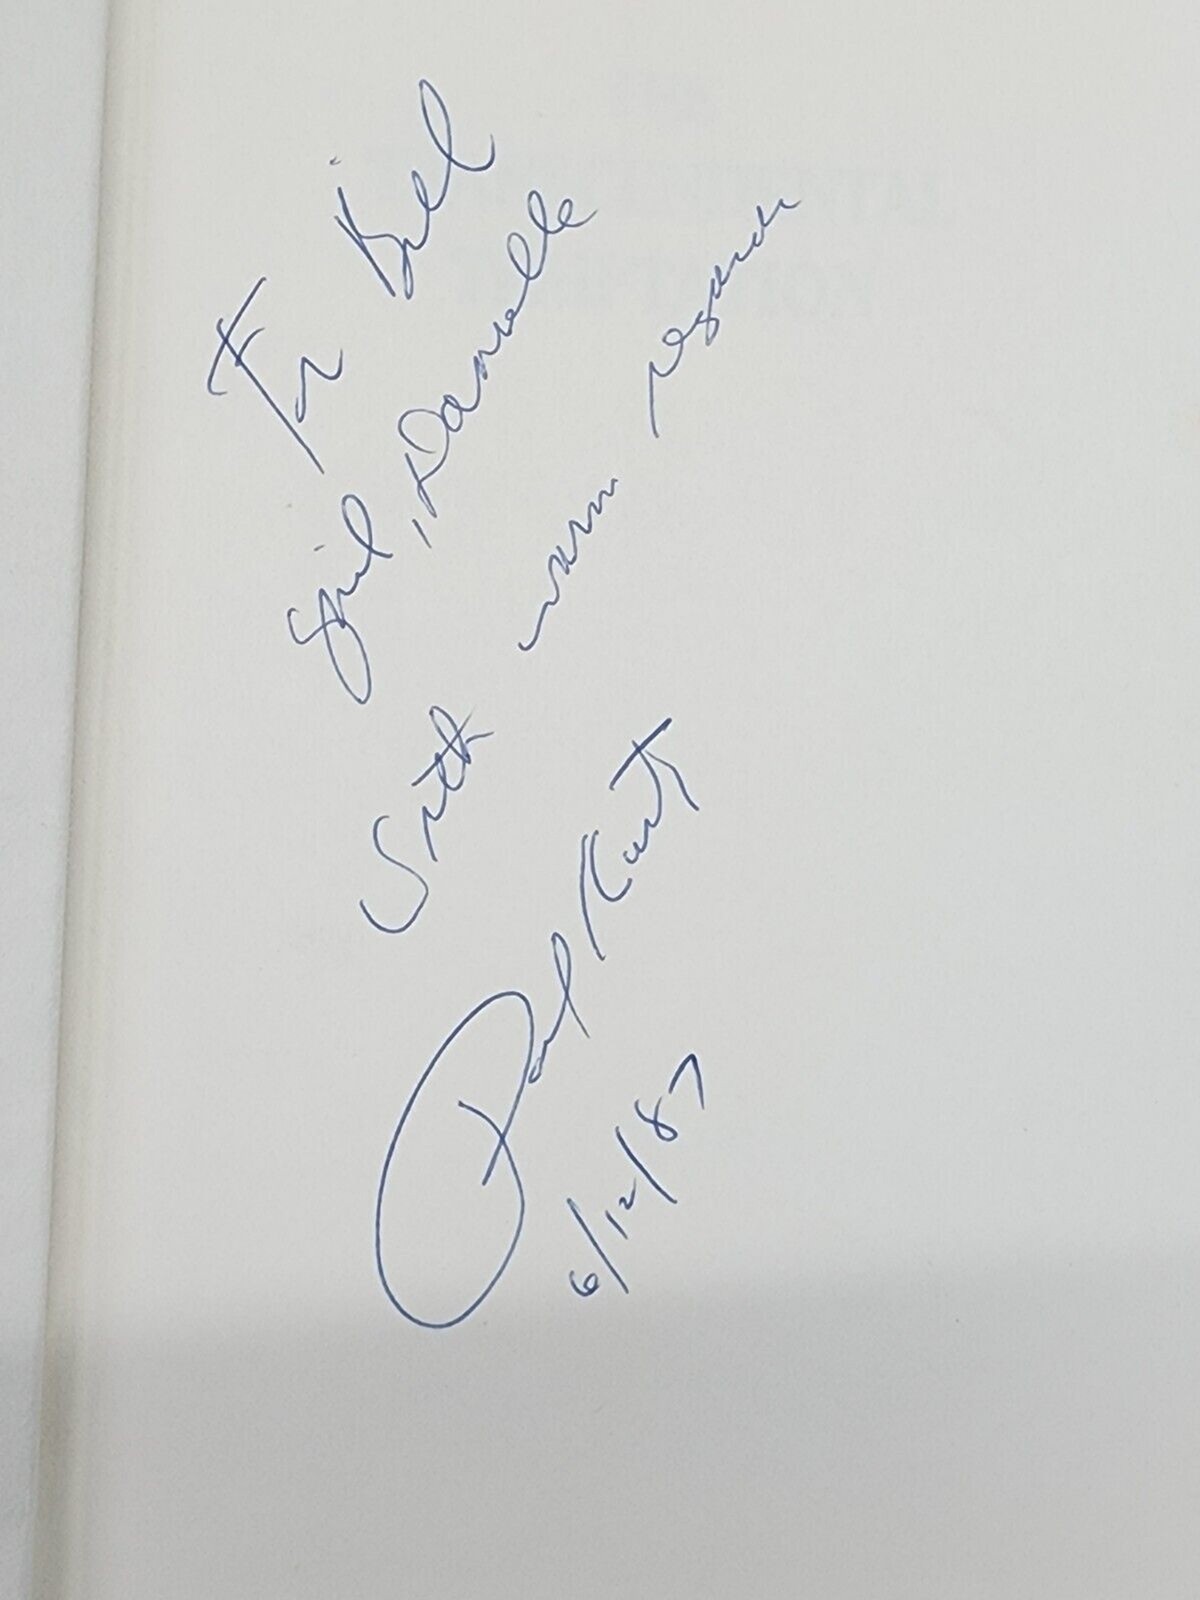 For Bill
Gil, Danielle
With warm regards
Paul Kurtz
6/12/87